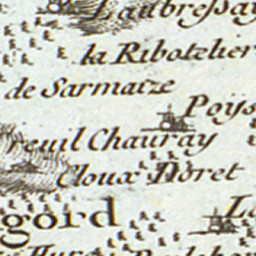 Laubressay
la Ribotelier
de Sarmaize
Poys
reuil Chauray
Cloux Noret
gord